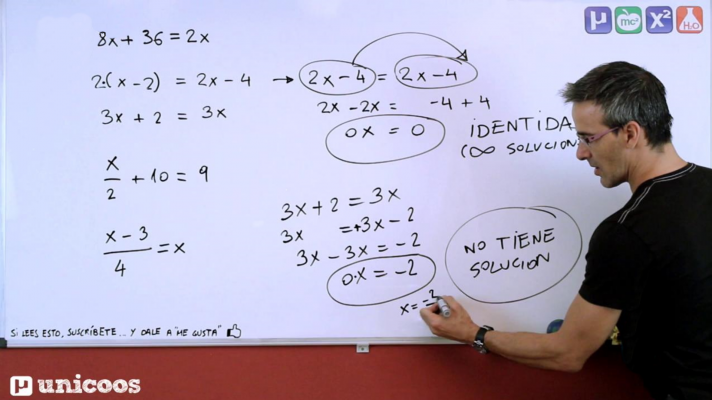 8x + 36 = 2x
2·(x - 2) = 2x - 4 → 2x - 4 = 2x - 4
2x - 2x = -4 + 4
0x = 0
IDENTIDA
(∞ SOLUCION
3x + 2 = 3x
x/2 + 10 = 9
x - 3/4 = x
3x + 2 = 3x
3x = +3x - 2
3x - 3x = -2
0·x = -2
x = -2
NO TIENE
SOLUCION
SI LEES ESTO, SUSCRÍBETE... Y DALE A "ME GUSTA"
μ mc² x² H₂O
μ unicoos